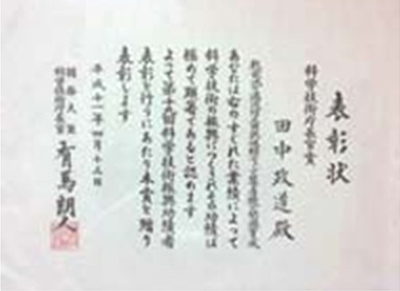 表彰状
科学技術庁長官賞
田中政道殿
あなたは右のすぐれた業績によって
科学技術の振興につくされその功績は
極めて顕著であると認めます
よって第十九回科学技術振興功績者
表彰を行うにあたり本賞を贈り
表彰します
平成十一年四月十三日
国務大臣
科学技術庁長官 有馬朗人